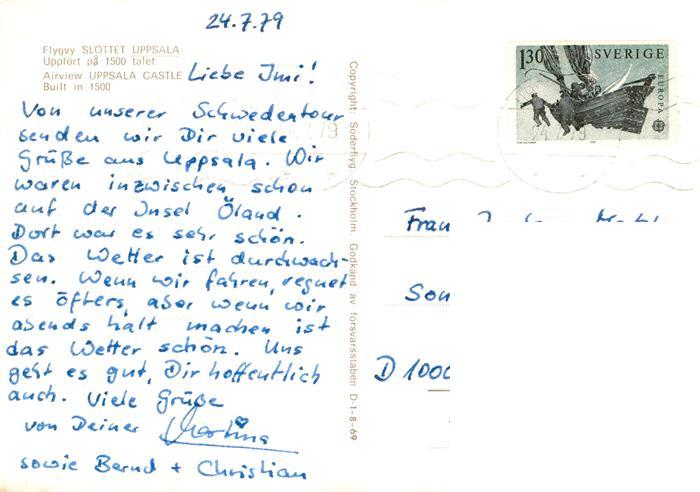 24.7.79
Flygvy SLOTTET UPPSALA
Uppfört på 1500 talet
Airview UPPSALA CASTLE
Built in 1500
Liebe Imi!
Von unserer Schwedentour
senden wir Dir viele
Grüße aus Uppsala. Wir
waren inzwischen schon
auf der Insel Öland.
Dort war es sehr schön.
Das Wetter ist durchwach-
sen. Wenn wir fahren, regnet
es öfters, aber wenn wir
abends halt machen ist
das Wetter schön. Uns
geht es gut, Dir hoffentlich
auch. Viele Grüße
von Deiner Martina
sowie Bernd + Christian
Copyright: Söderflyg Stockholm. Godkänd av försvarsstaben D-1-8-69
130 SVERIGE
EUROPA
79
Frau
Son
D 1000